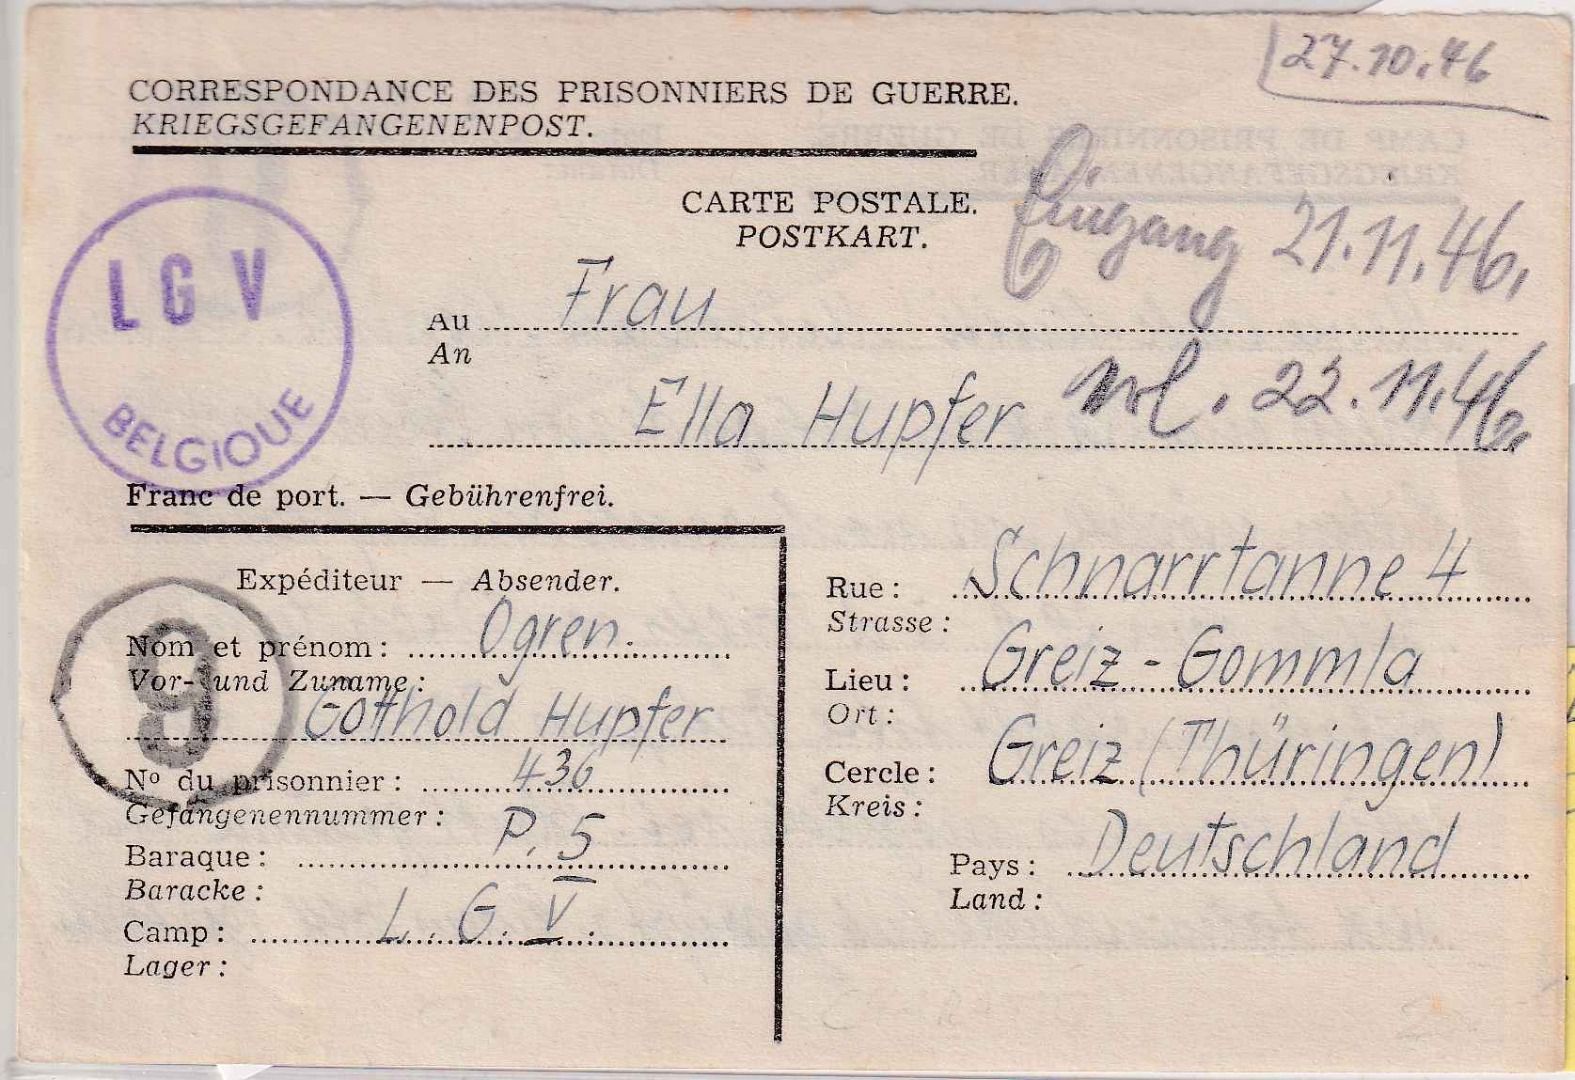 27.10.46
CORRESPONDANCE DES PRISONNIERS DE GUERRE.
KRIEGSGEFANGENENPOST.
CARTE POSTALE.
POSTKART.
Eingang 21.11.46.
LGV
BELGIQUE
Au Frau
An
Ella Hupfer
22.11.46.
Franc de port. — Gebührenfrei.
Expéditeur — Absender.
Nom et prénom: Ogren.
Vor- und Zuname:
Gotthold Hupfer
9
No du prisonnier: 436
Gefangenennummer:
Baraque: P. 5
Baracke:
Camp: L. G. V
Lager:
Rue: Schnarrtanne 4
Strasse:
Lieu: Greiz-Gommla
Ort:
Cercle: Greiz (Thüringen)
Kreis:
Pays: Deutschland
Land: